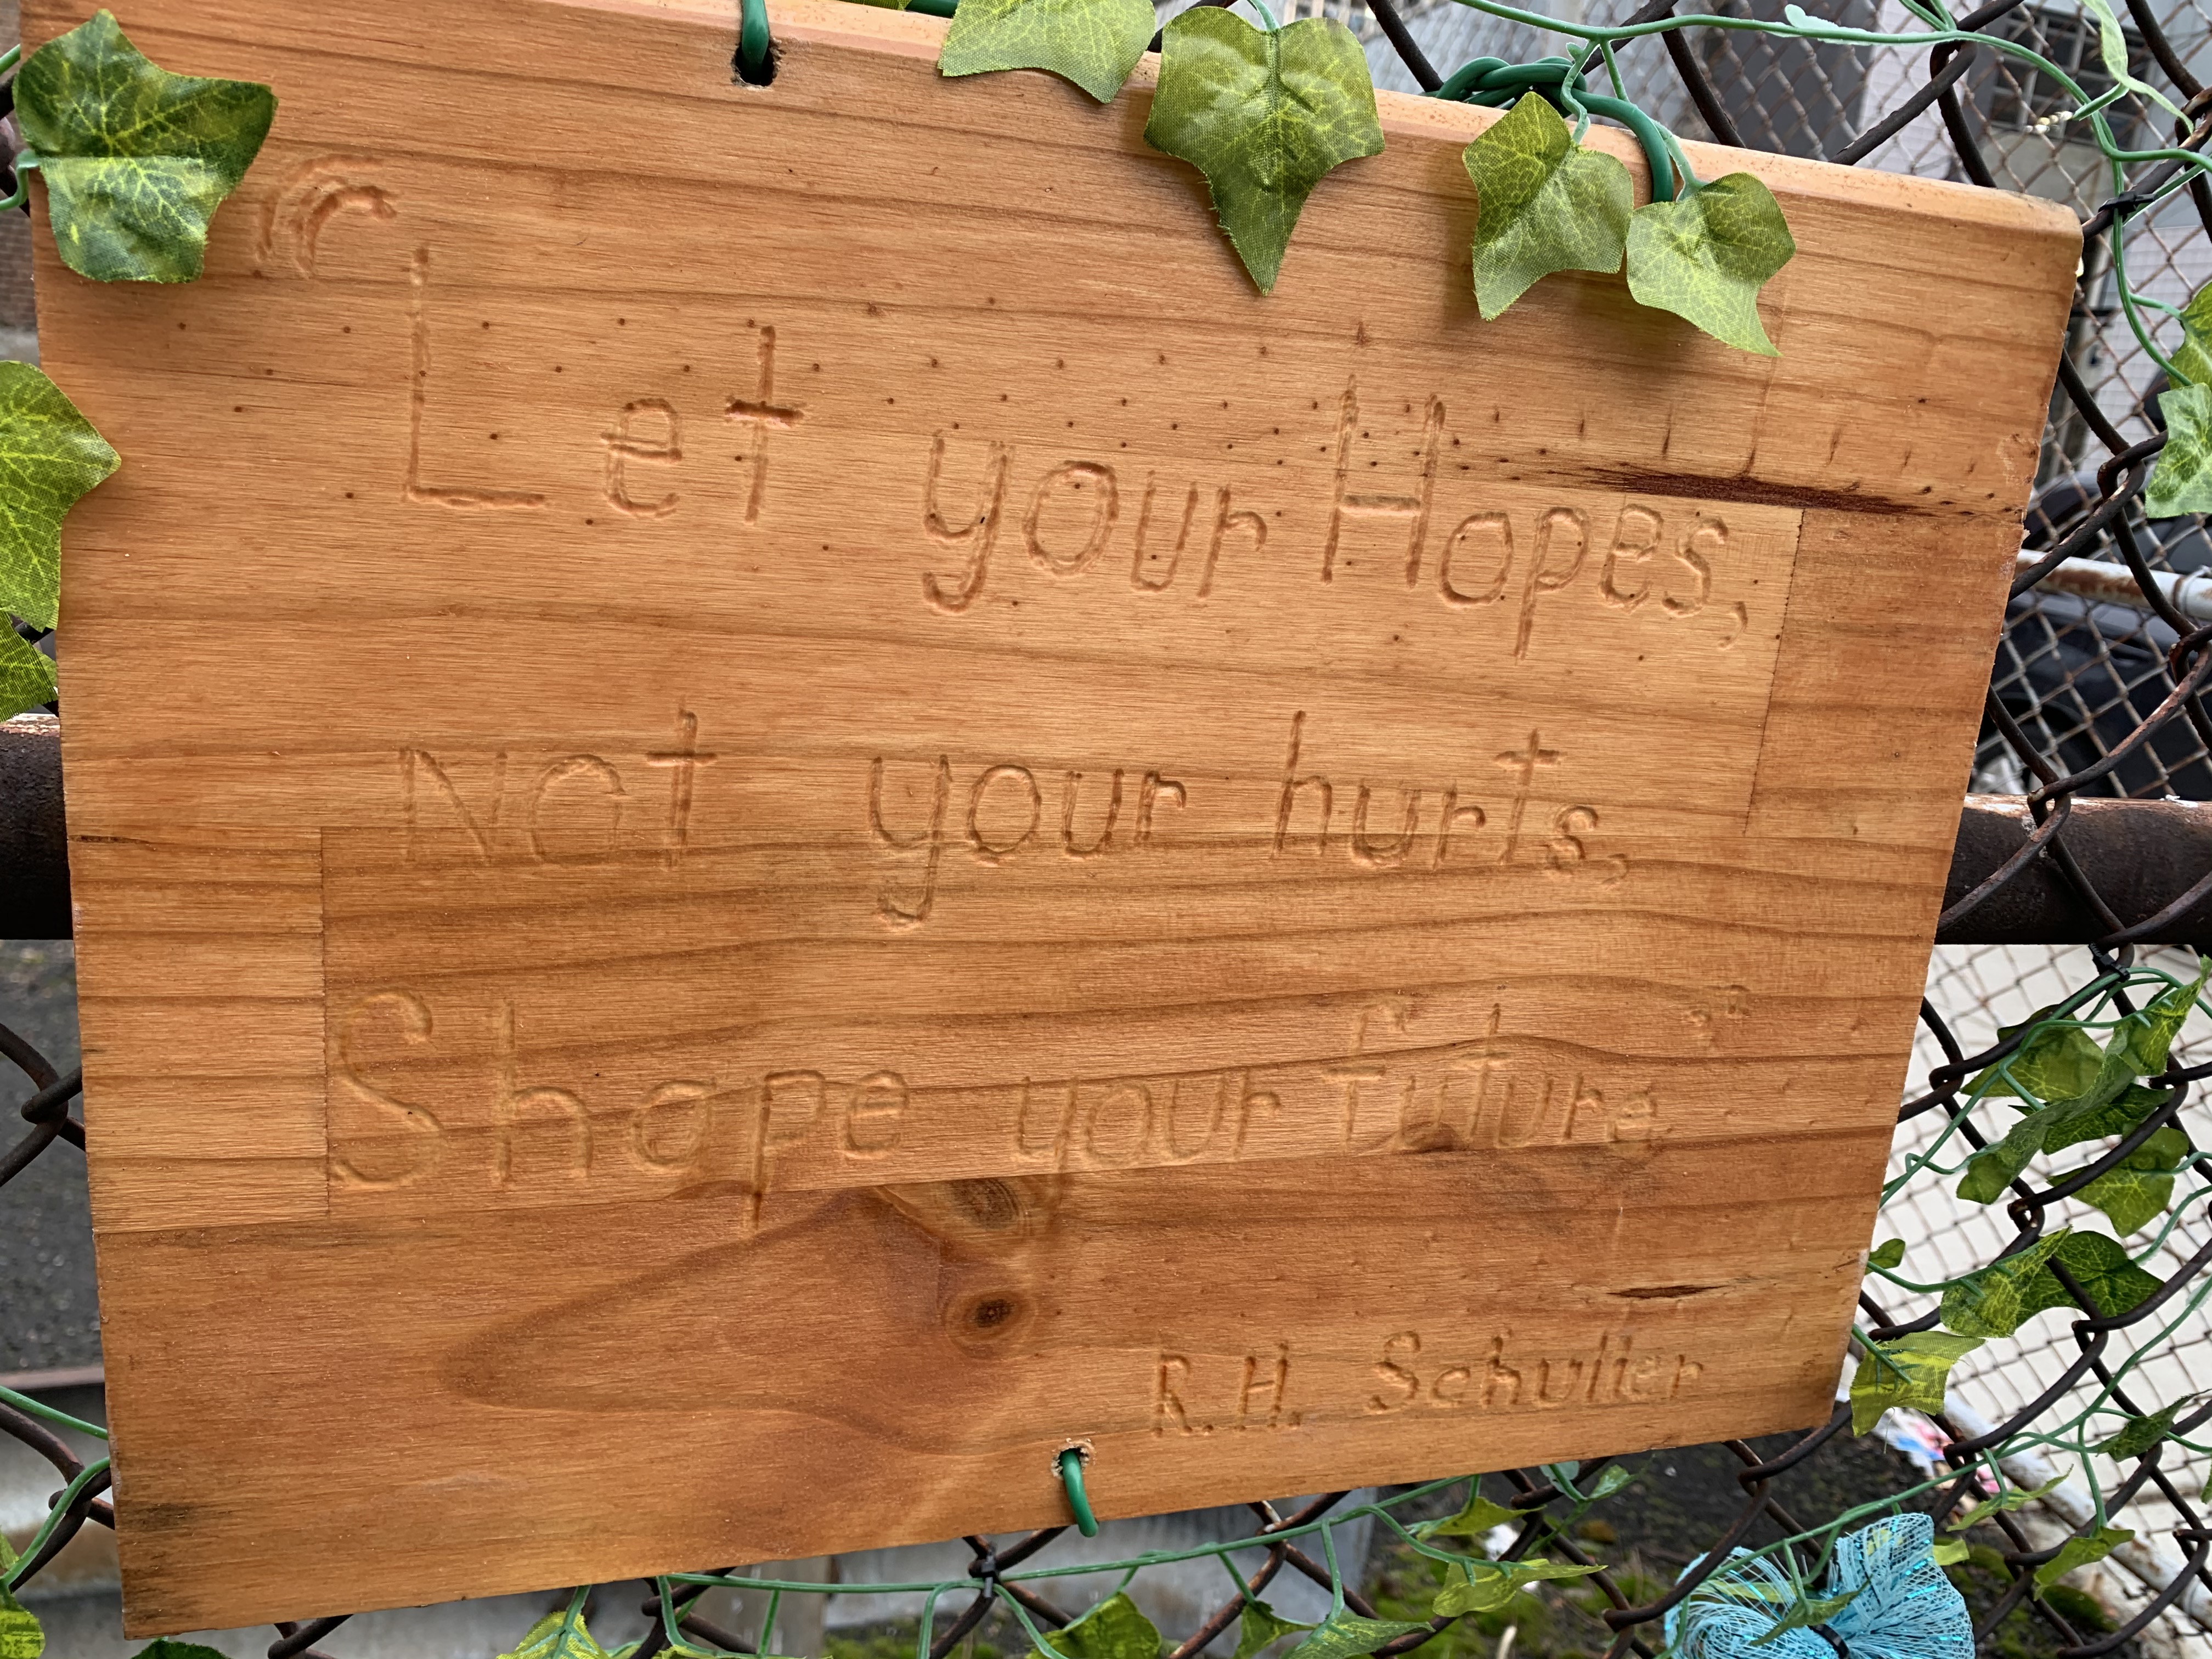 "Let your Hopes,
Not your hurts,
Shape your future"
R.H. Schuller